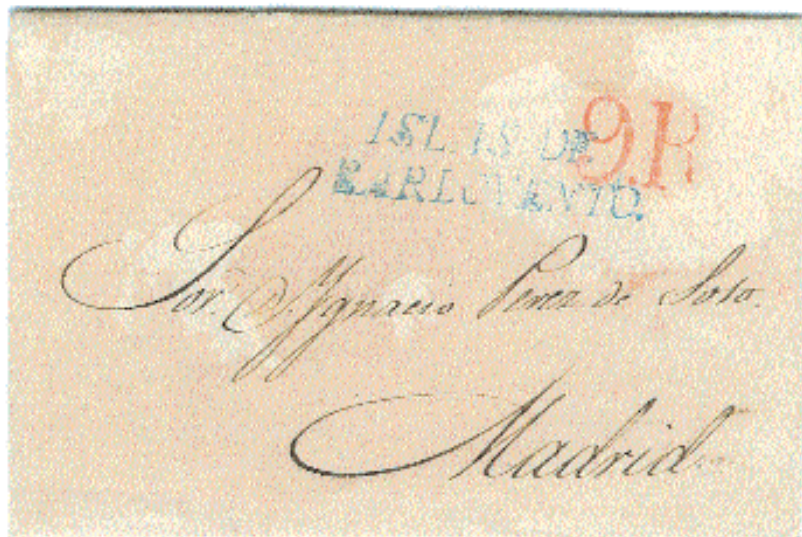 ISLAS DE
BARLOVENTO.
9.R
Sor. D. Ygnacio Perez de Soto.
Madrid